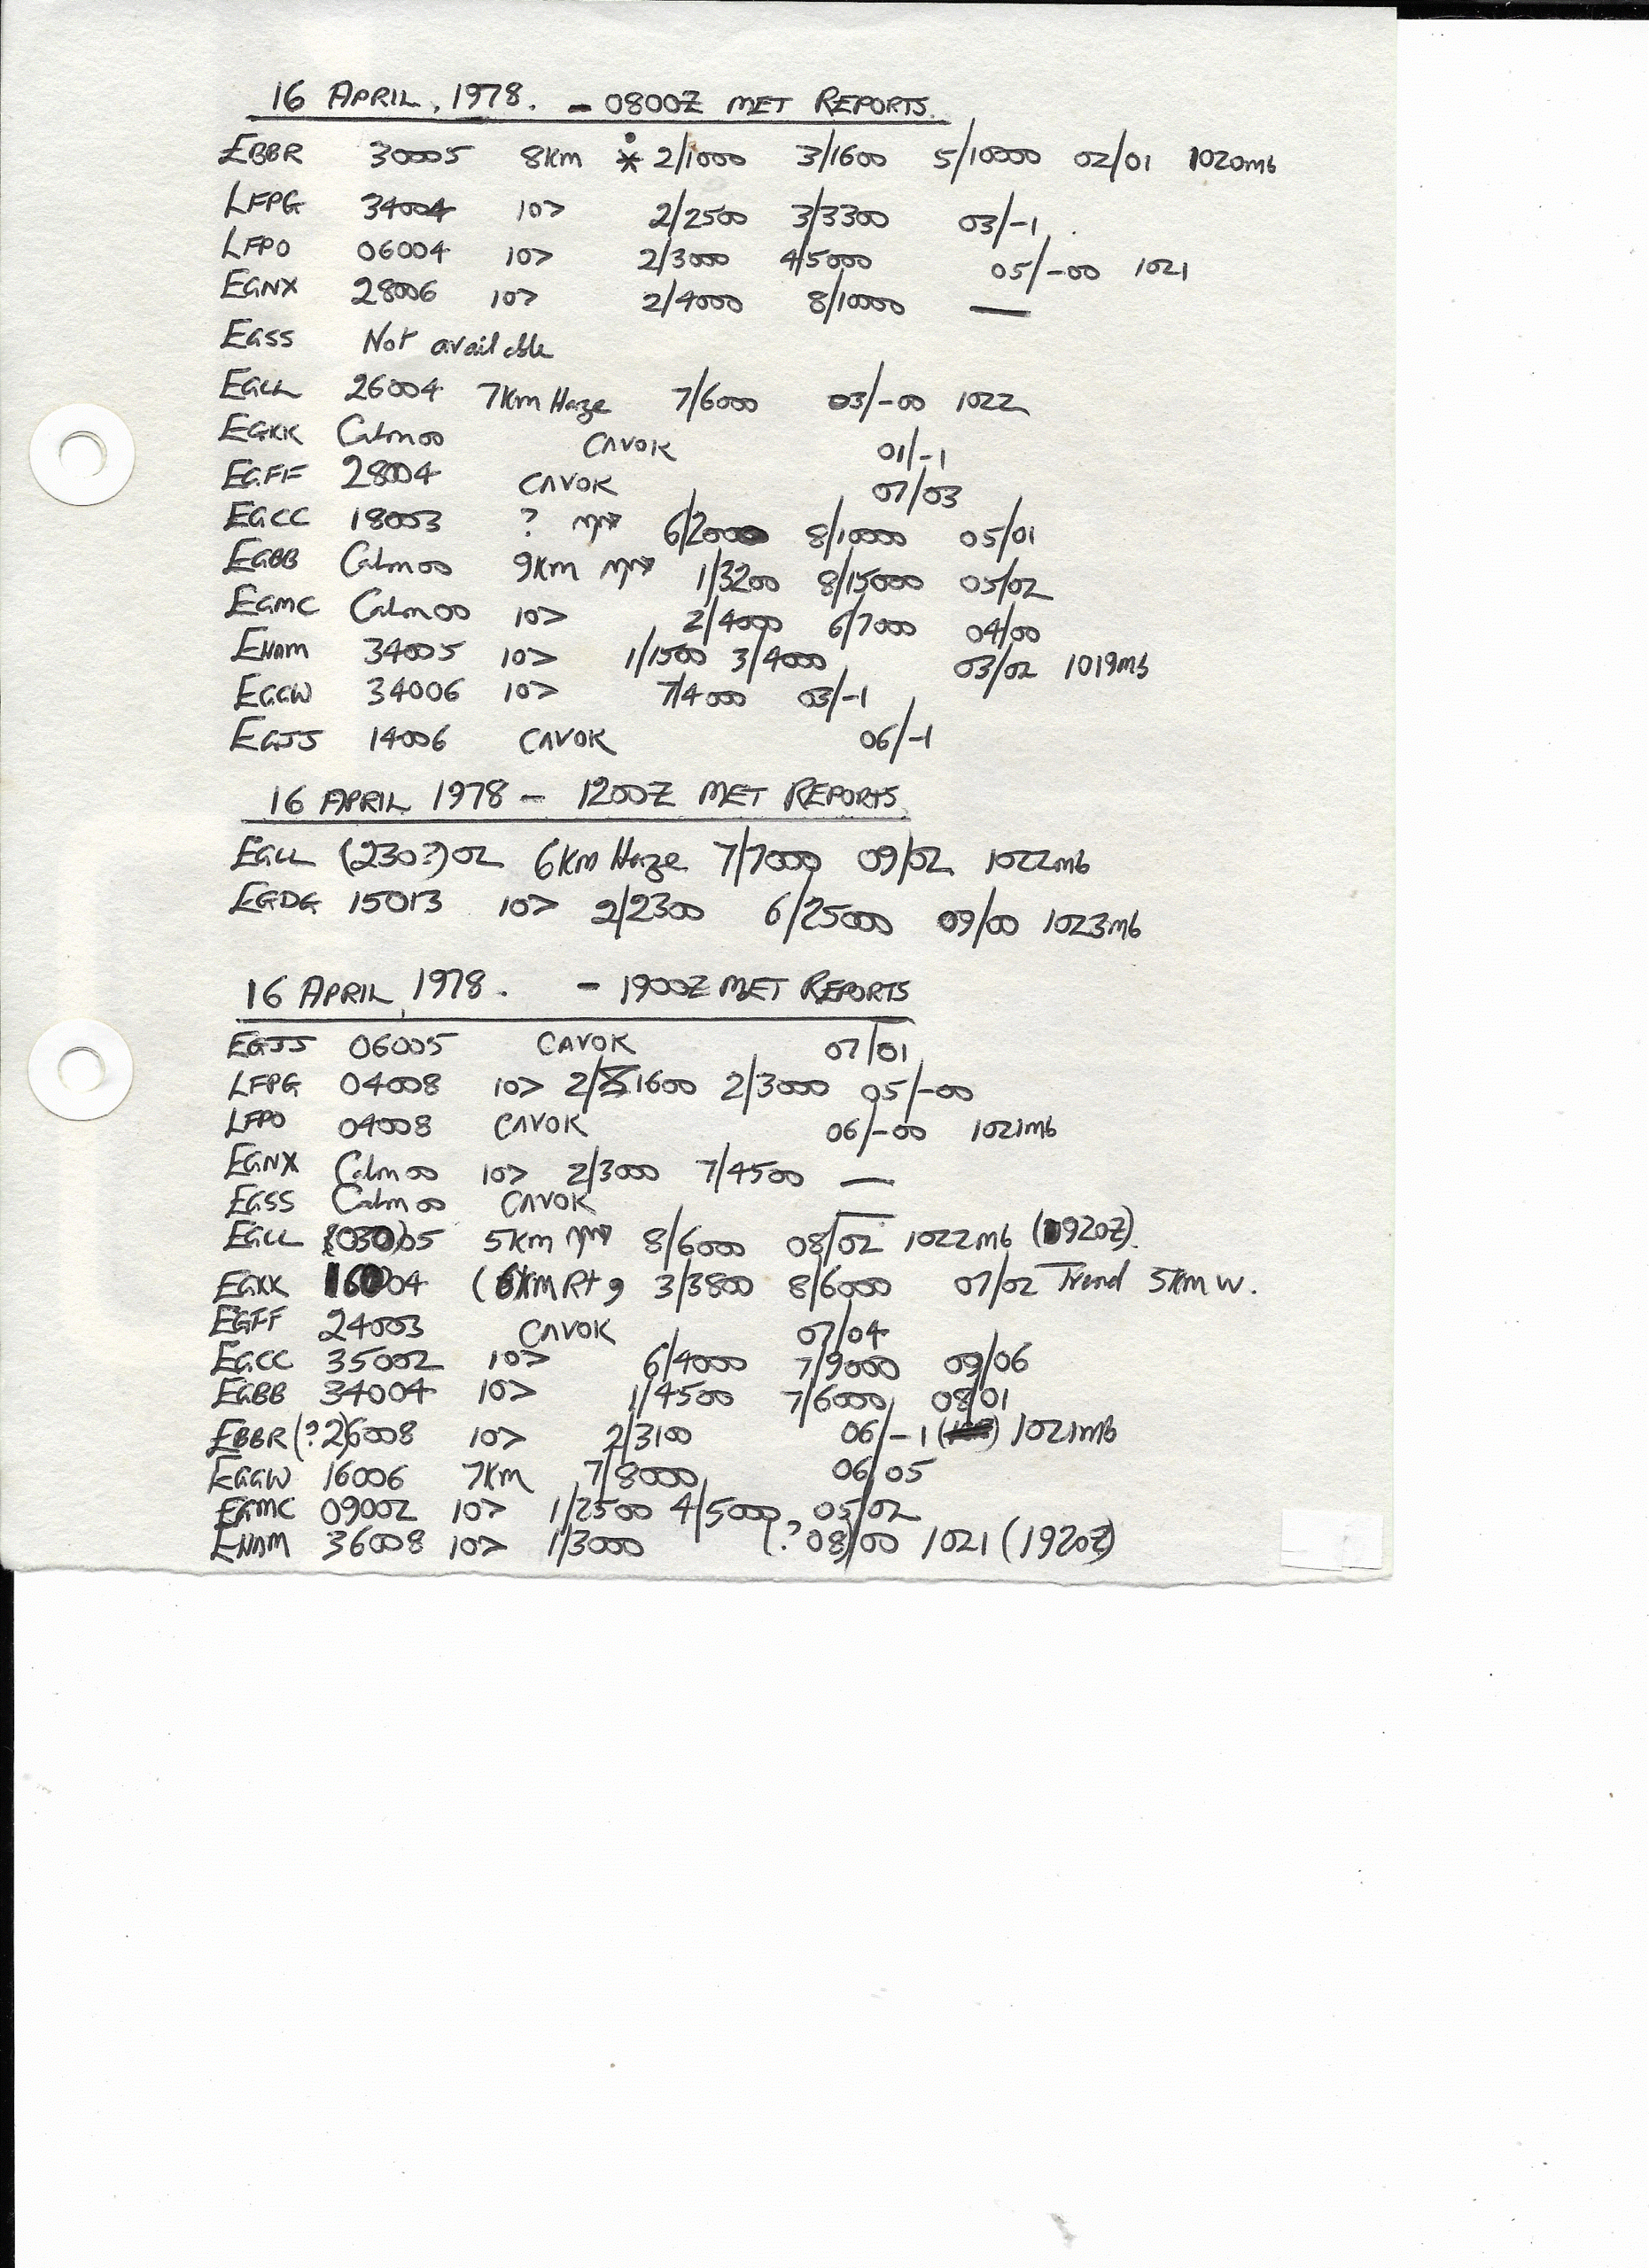 16 APRIL, 1978. - 0800Z MET REPORTS.
EBBR 30005 8KM * 2/1000 3/1600 5/10000 02/01 1020mb
LFPG 34004 10> 2/2500 3/3300 03/-1.
LFPO 06004 10> 2/3000 4/5000 05/-00 1021
EGNX 28006 10> 2/4000 8/10000 —
EGSS Not available
EGLL 26004 7Km Haze 7/6000 03/-00 1022
EGKK Calm 00 CAVOK 01/-1
EGFF 28004 CAVOK 07/03
EGCC 18003 ? 6/2000 8/10000 05/01
EGBB Calm 00 9Km 1/3200 8/15000 05/02
EGMC Calm 00 10> 2/4000 6/7000 04/00
EHAM 34005 10> 1/1500 3/4000 03/02 1019mb
EGGW 34006 10> 7/4000 03/-1
EGJJ 14006 CAVOK 06/-1
16 APRIL 1978 - 1200Z MET REPORTS.
EGLL (230?)02 6Km Haze 7/7000 09/02 1022mb
EGDG 15013 10> 2/2300 6/25000 09/00 1023mb
16 APRIL, 1978. - 1900Z MET REPORTS
EGJJ 06005 CAVOK 07/01
LFPG 04008 10> 2/1600 2/3000 05/-00
LFPO 04008 CAVOK 06/-00 1021mb
EGNX Calm 00 10> 2/3000 7/4500 —
EGSS Calm 00 CAVOK —
EGLL (030)05 5Km 8/6000 08/02 1022mb (1920Z).
EGKK 16004 (6KM Rt, 3/3800 8/6000 07/02 Trend 5KM W.
EGFF 24003 CAVOK 07/04
EGCC 35002 10> 6/4000 7/9000 09/06
EGBB 34004 10> 1/4500 7/6000 08/01
EBBR (?2)6008 10> 2/3100 06/-1 1021mb
EGGW 16006 7KM 7/8000 06/05
EGMC 09002 10> 1/2500 4/5000 05/02
EHAM 36008 10> 1/3000 (?08/00 1021 (1920Z)